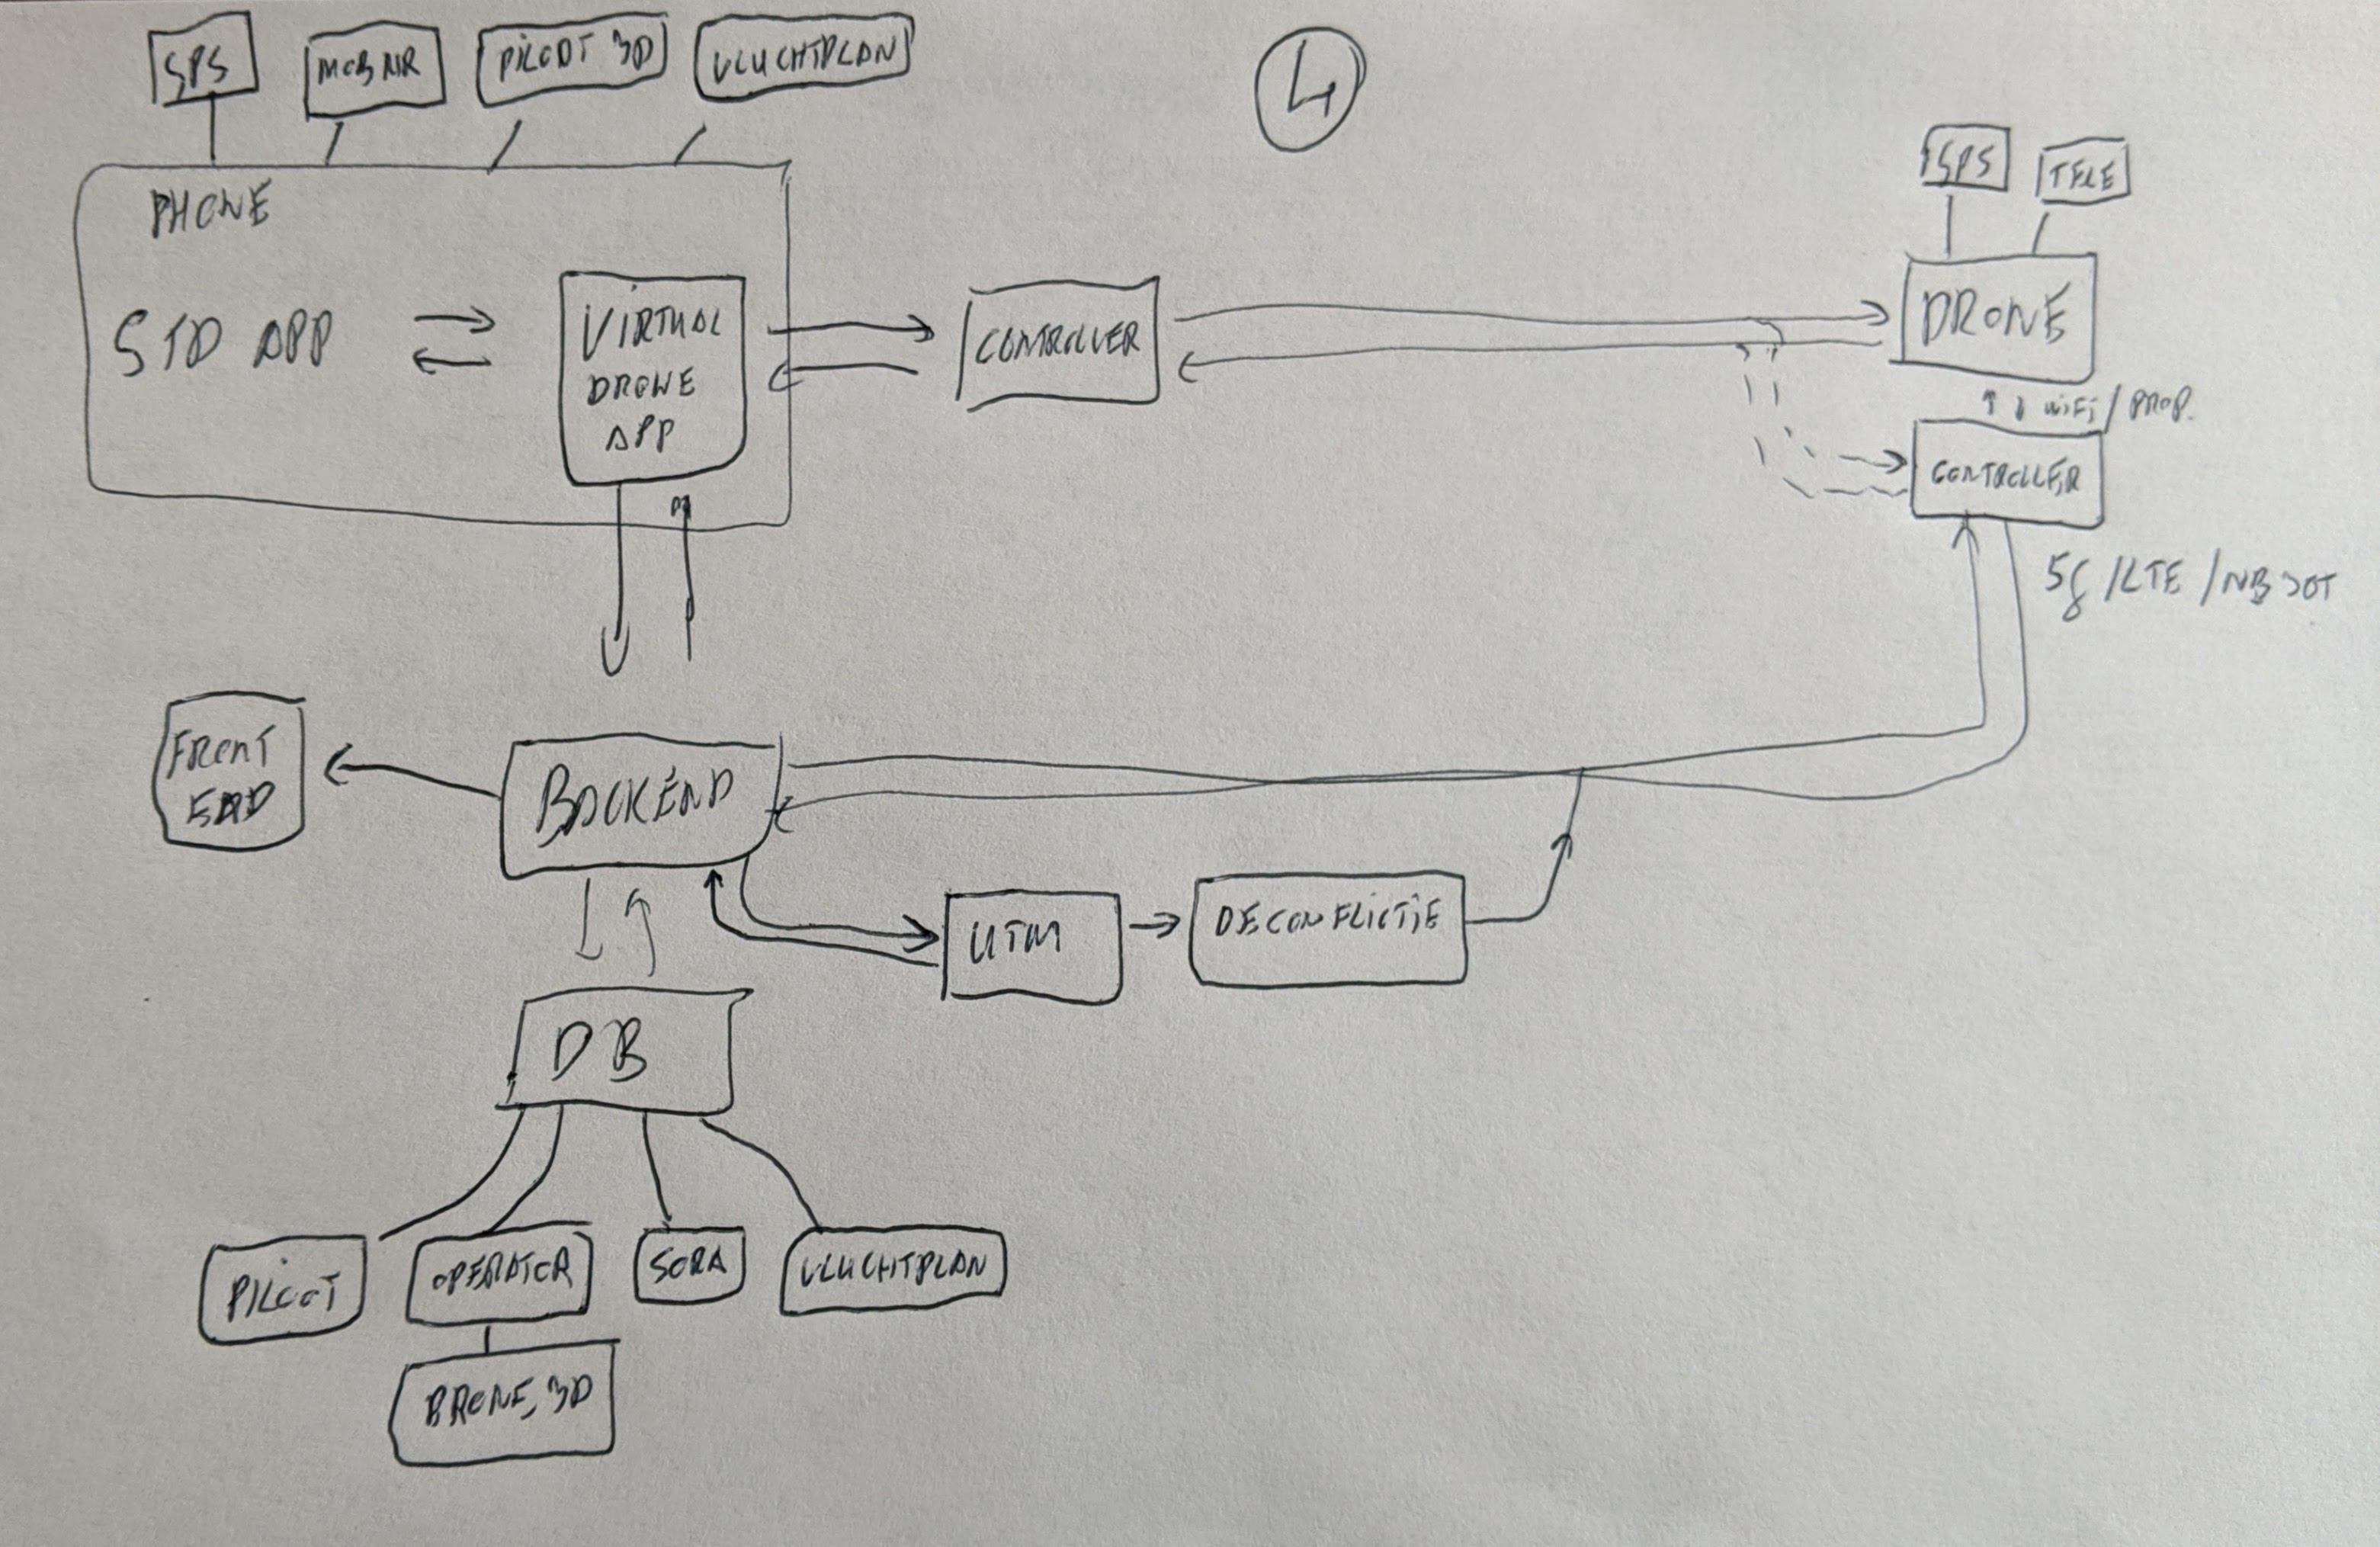 GPS
MOB NR
PILOOT ID
VLUCHTPLAN
4
GPS
TELE
PHONE
STD APP
VIRTUAL
DRONE
APP
CONTROLLER
DRONE
WIFI / PROP.
CONTROLLER
5G / LTE / NB IOT
FRONT
END
BACKEND
UTM
DECONFLICTIE
DB
PILOOT
OPERATOR
SORA
VLUCHTPLAN
DRONE ID